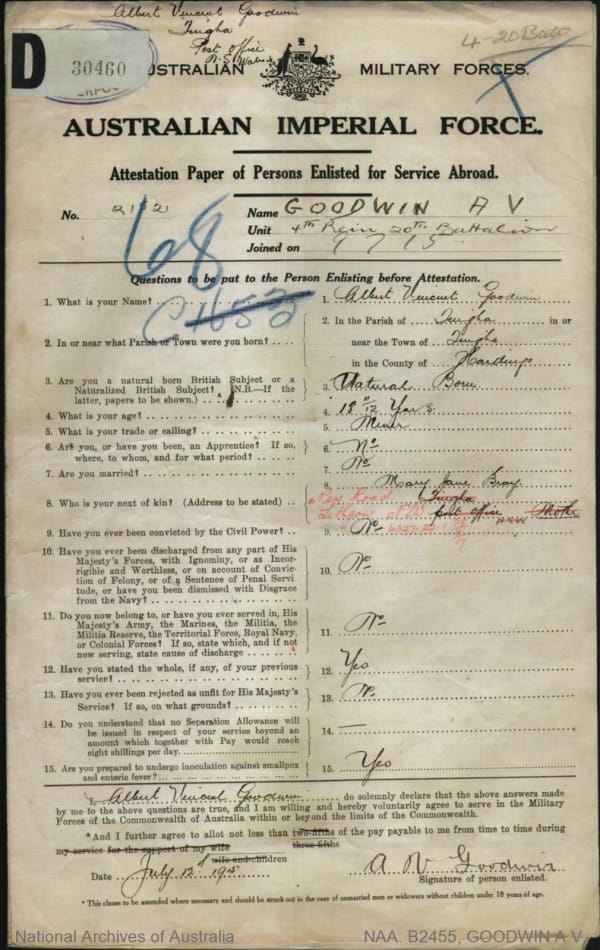 Albert Vincent Goodwin
Tingha
Post Office
N.S. Wales
4-20 Batt
D
30460
AUSTRALIAN MILITARY FORCES.
AUSTRALIAN IMPERIAL FORCE.
Attestation Paper of Persons Enlisted for Service Abroad.
No. 2182
Name GOODWIN A V
Unit 4th Rein 20th Battalion
Joined on 9 7 15
68
Questions to be put to the Person Enlisting before Attestation.
1. What is your Name? 1. Albert Vincent Goodwin
2. In or near what Parish or Town were you born? 2. In the Parish of Tingha in or
near the Town of Tingha
in the County of Hardinge
3. Are you a natural born British Subject or a
Naturalized British Subject? (N.B.—If the
latter, papers to be shown.) 3. Natural Born
4. What is your age? 4. 18 Years
5. What is your trade or calling? 5. Miner
6. Are you, or have you been, an Apprentice? If so,
where, to whom, and for what period? 6. No
7. Are you married? 7. No
8. Who is your next of kin? (Address to be stated) 8. Mary Jane Bray
New Road Tingha
Lithgow NSW post office Mother
9. Have you ever been convicted by the Civil Power? 9. No
10. Have you ever been discharged from any part of His
Majesty's Forces, with Ignominy, or as Incor-
rigible and Worthless, or on account of Convic-
tion of Felony, or of a Sentence of Penal Servi-
tude, or have you been Dismissed with Disgrace
from the Navy? 10. No
11. Do you now belong to, or have you ever served in, His
Majesty's Army, the Marines, the Militia, the
Militia Reserve, the Territorial Force, Royal Navy,
or Colonial Forces? If so, state which, and if not
now serving, state cause of discharge 11. No
12. Have you stated the whole, if any, of your previous
service? 12. Yes
13. Have you ever been rejected as unfit for His Majesty's
Service? If so, on what grounds? 13. No
14. Do you understand that no Separation Allowance will
be issued in respect of your service beyond an
amount which together with Pay would reach
eight shillings per day. 14. —
15. Are you prepared to undergo inoculation against smallpox
and enteric fever? 15. Yes
I, Albert Vincent Goodwin do solemnly declare that the above answers made
by me to the above questions are true, and I am willing and hereby voluntarily agree to serve in the Military
Forces of the Commonwealth of Australia within or beyond the limits of the Commonwealth.
*And I further agree to allot not less than two-fifths of the pay payable to me from time to time during
three-fifths
my service for the support of my wife
wife and children
Date July 12th 1915
A V Goodwin
Signature of person enlisted.
* This clause to be amended where necessary and should be struck out in the case of unmarried men or widowers without children under 18 years of age.
National Archives of Australia
NAA: B2455, GOODWIN A V